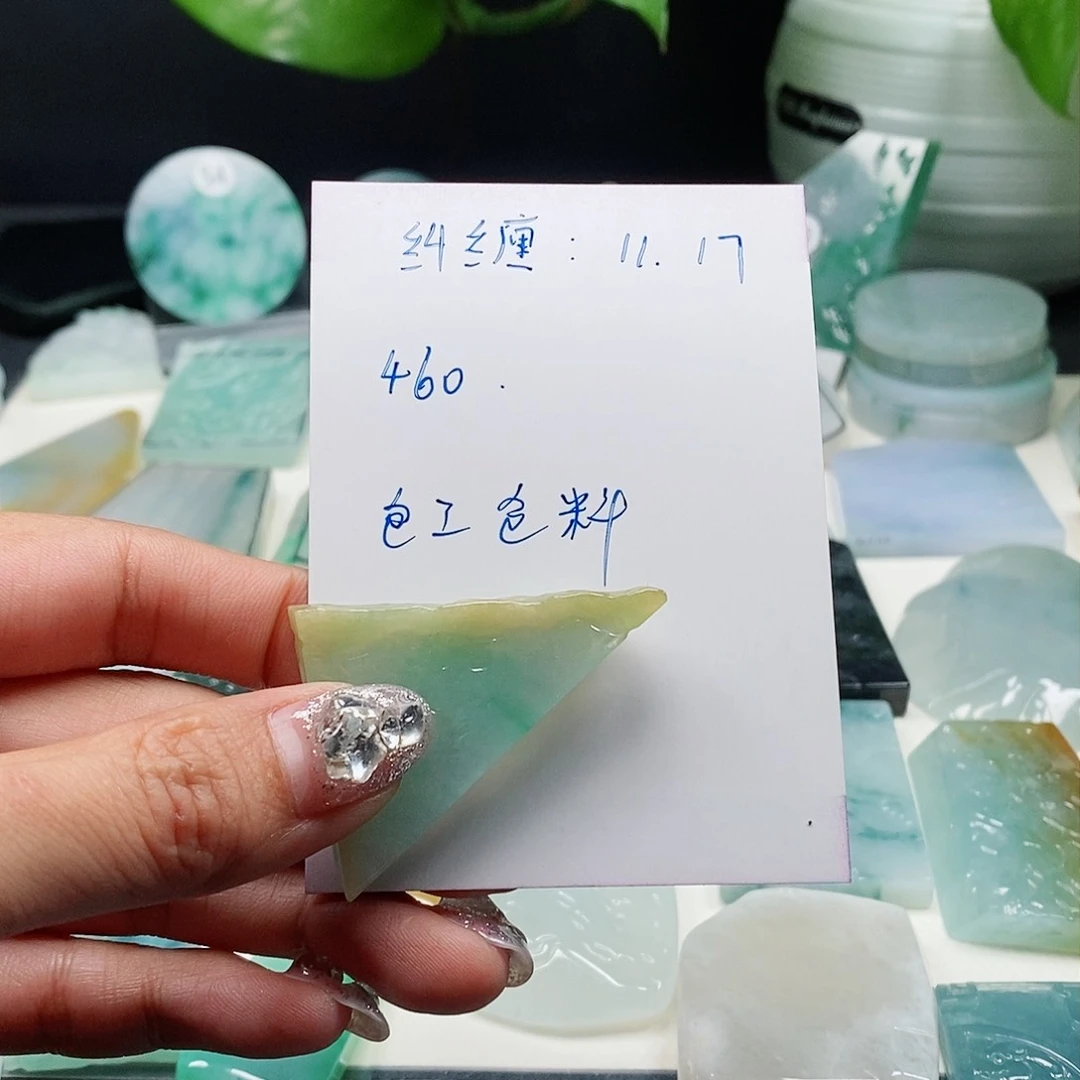 纠缠：11.17
460.
包工包料
14